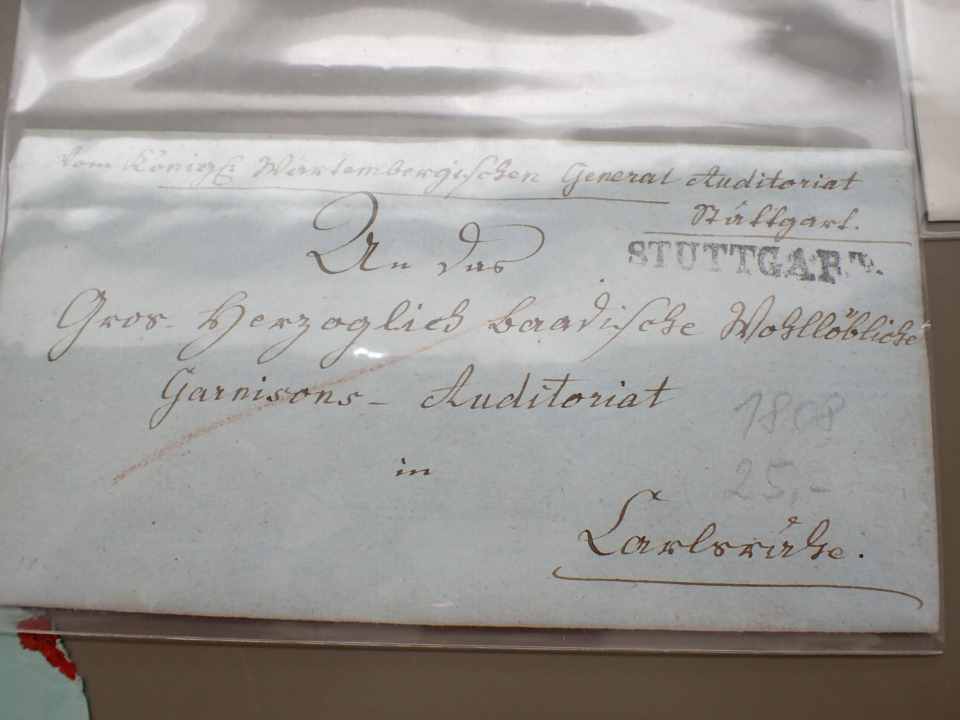 Vom Königl. Würtembergischen General Auditoriat
Stuttgart.
STUTTGART.
An das
Gros-Herzoglich baadische Wohllöbliche
Garnisons-Auditoriat
in
Carlsruhe.
1808
25,-